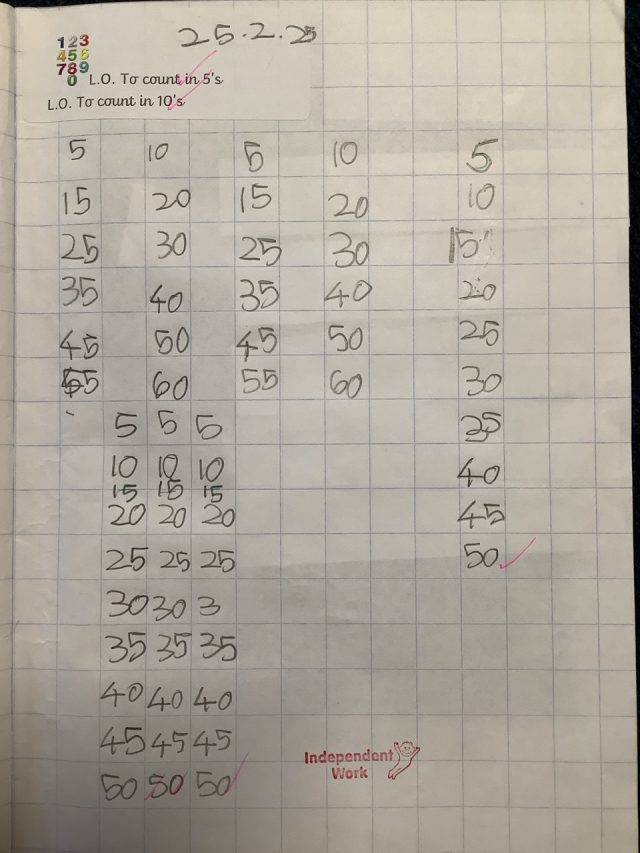 25.2.25
123
456
789
0 L.O. To count in 5's
L.O. To count in 10's
5 10 5 10 5
15 20 15 20 10
25 30 25 30 15
35 40 35 40 20
45 50 45 50 25
55 60 55 60 30
5 5 5 35
10 10 10 40
15 15 15
20 20 20 45
25 25 25 50
30 30 3
35 35 35
40 40 40
45 45 45
Independent
Work
50 50 50